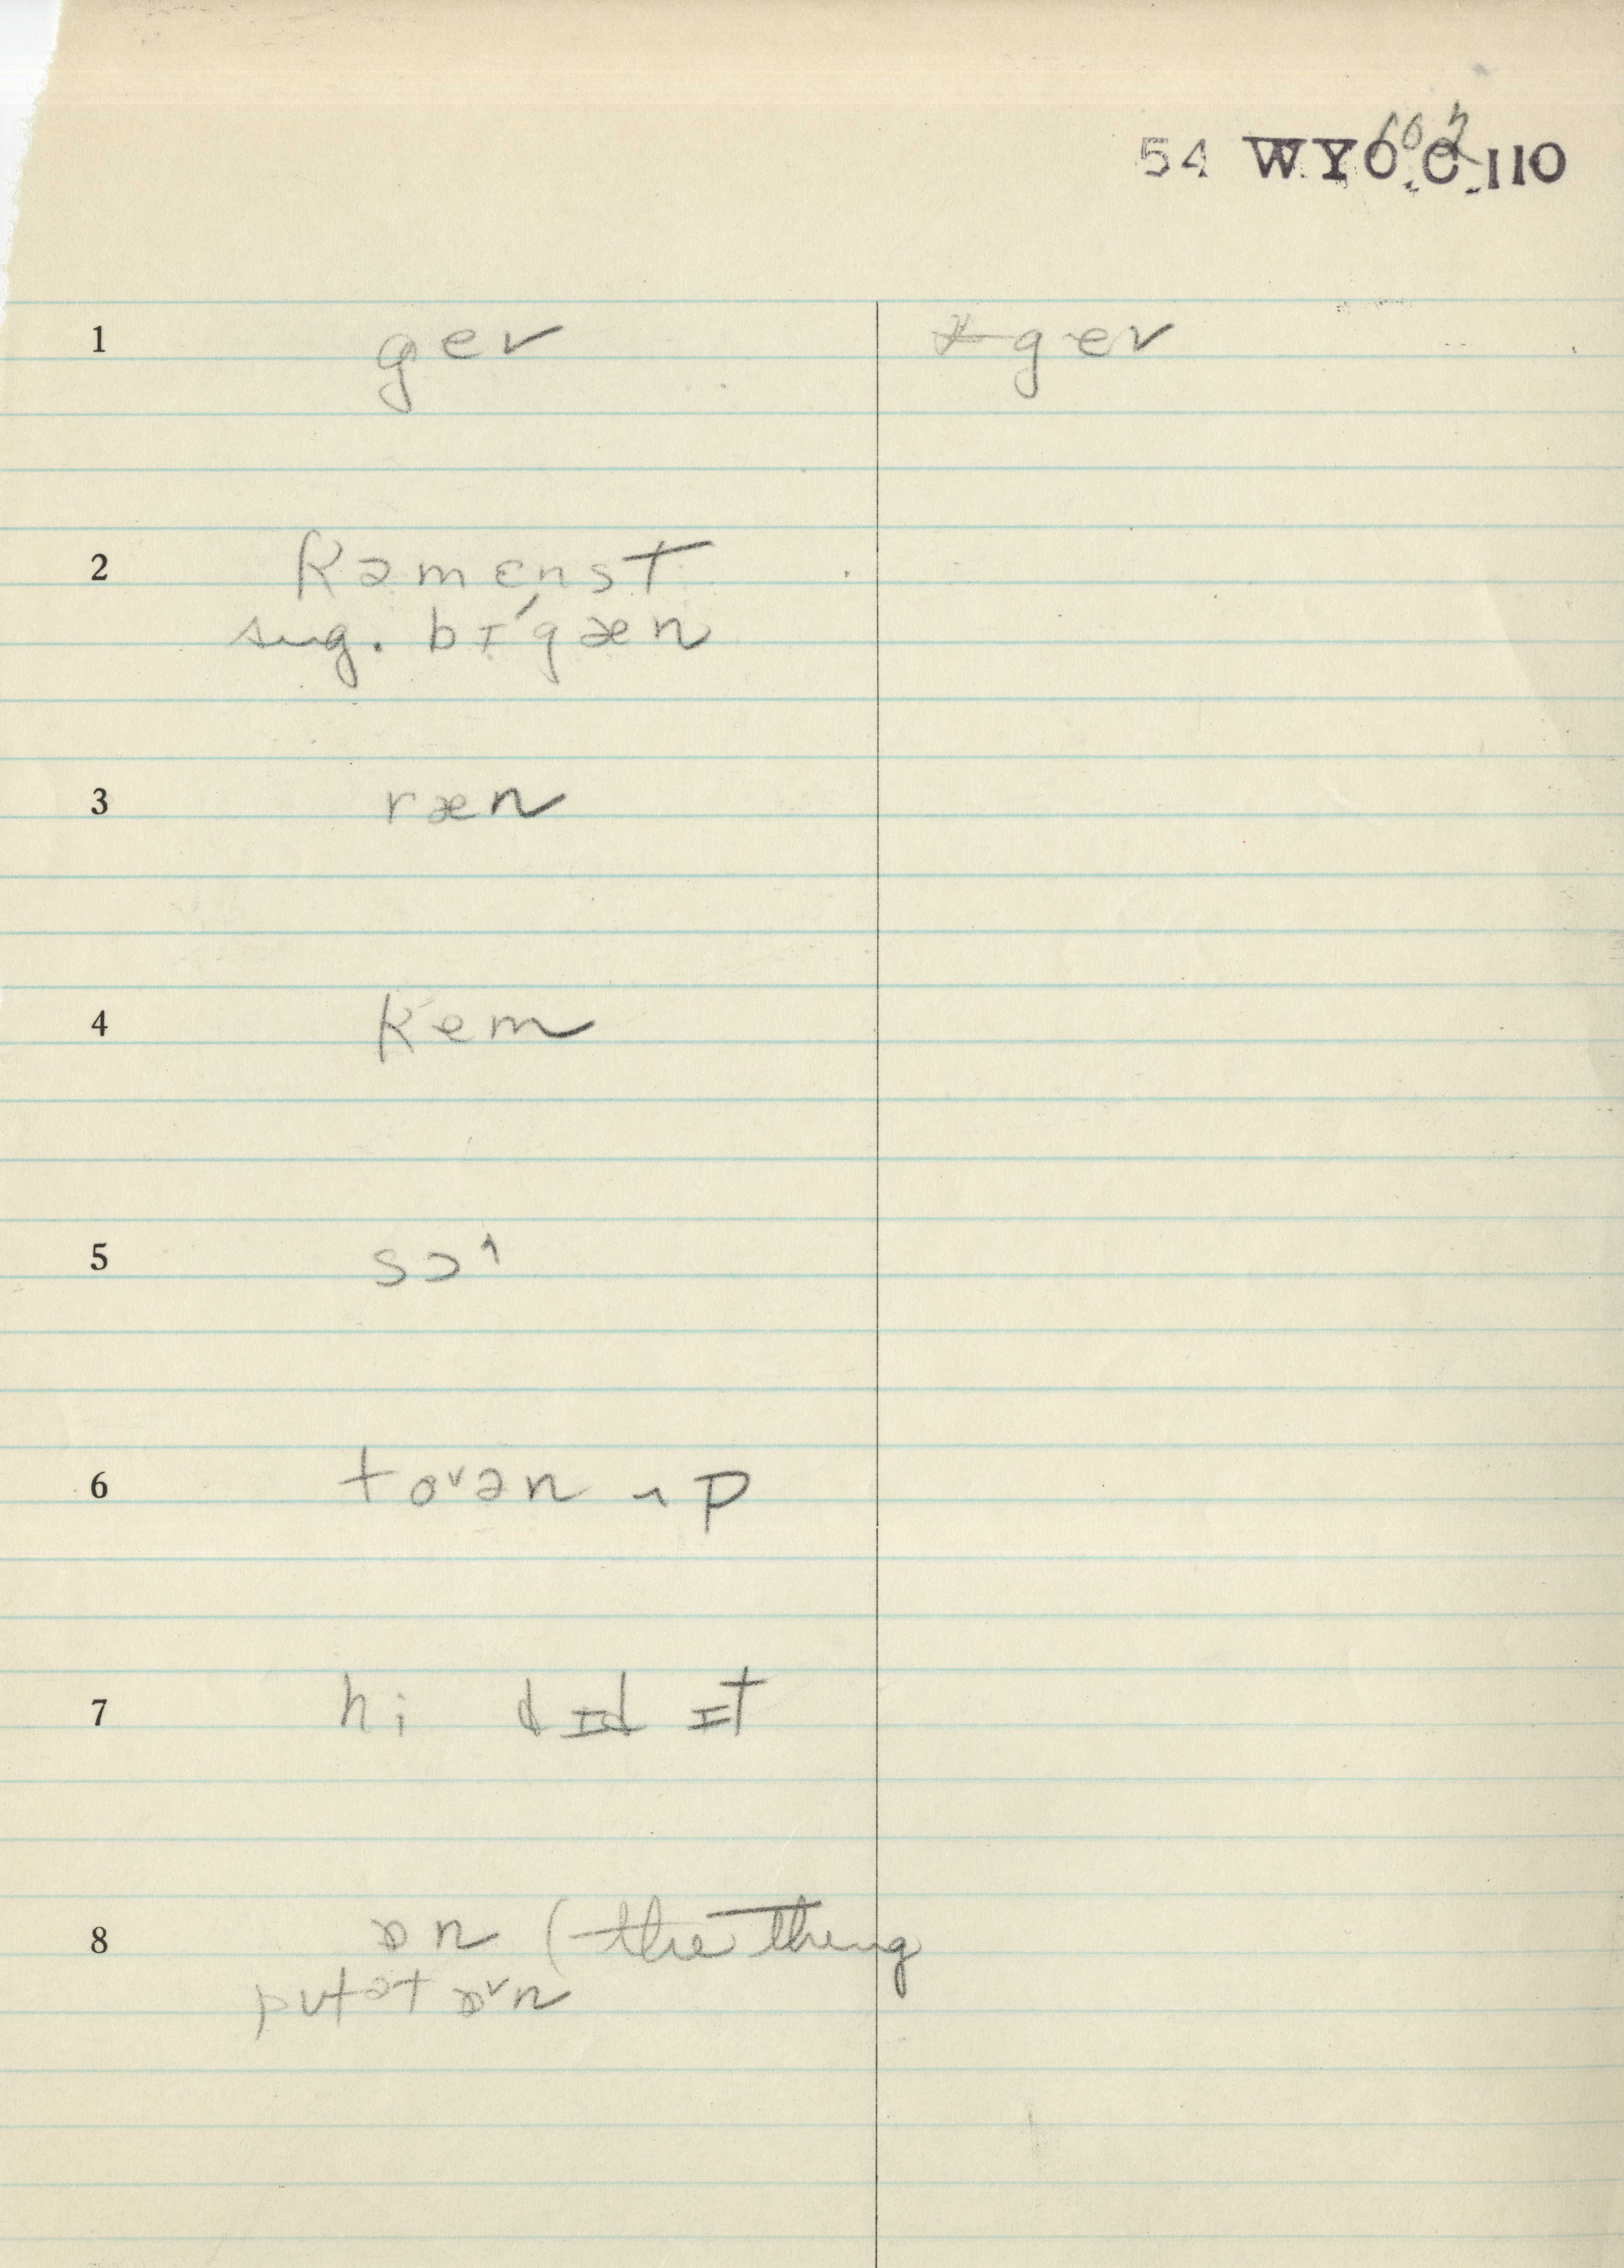 54 WYO C 110
602
1 gev gev
2 kəmɛ́nst
sug. bɪ́gæn
3 ræn
4 kem
5 sɔ˄
6 to˅ən ʌp
7 hi dɪd ɪt
8 ɒn (the thing
putət ɒ˅n